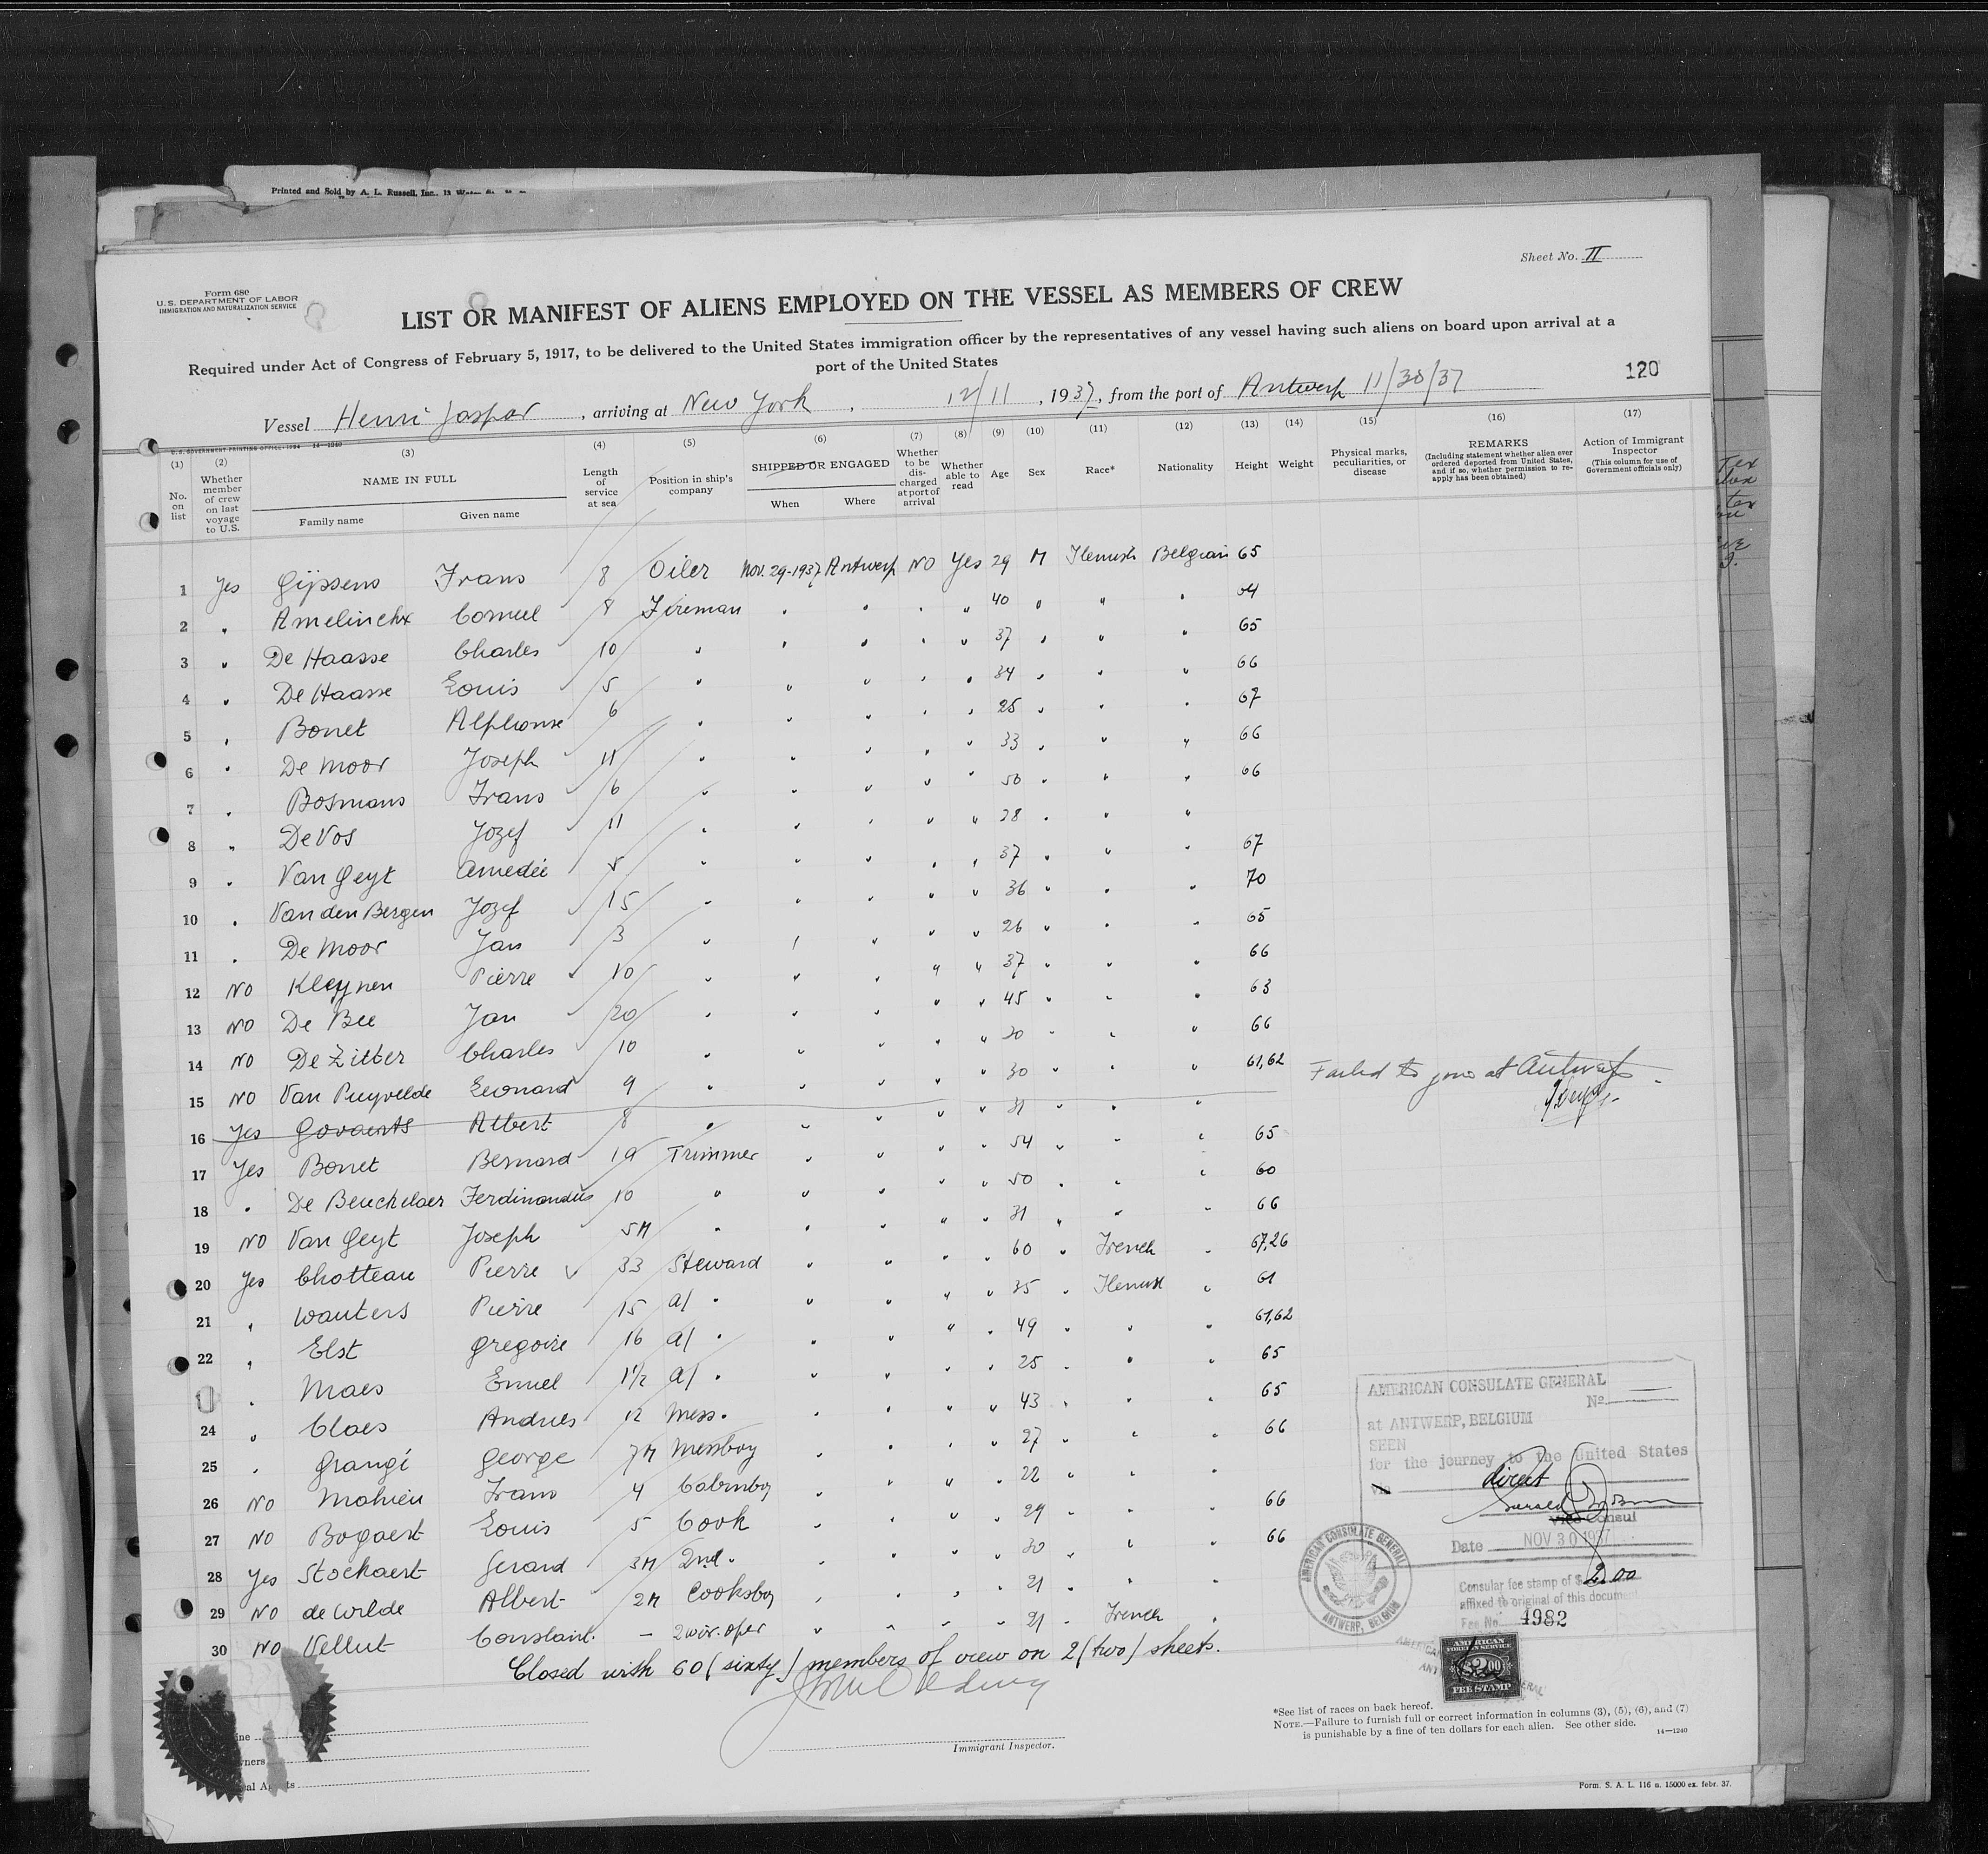 Printed and Sold by A. L. Russell, Inc.
Sheet No. II
Form 680
U.S. DEPARTMENT OF LABOR
IMMIGRATION AND NATURALIZATION SERVICE
LIST OR MANIFEST OF ALIENS EMPLOYED ON THE VESSEL AS MEMBERS OF CREW
Required under Act of Congress of February 5, 1917, to be delivered to the United States immigration officer by the representatives of any vessel having such aliens on board upon arrival at a
port of the United States
120
Vessel Henri Jaspar , arriving at New York , 12/11 , 1937, from the port of Antwerp 11/30/37
U.S. GOVERNMENT PRINTING OFFICE: 1934 14—1240
(1) (2) (3) (4) (5) (6) (7) (8) (9) (10) (11) (12) (13) (14) (15) (16) (17)
No. on list
Whether member of crew on last voyage to U.S.
NAME IN FULL
Family name
Given name
Length of service at sea
Position in ship's company
SHIPPED OR ENGAGED
When
Where
Whether to be discharged at port of arrival
Whether able to read
Age
Sex
Race*
Nationality
Height
Weight
Physical marks, peculiarities, or disease
REMARKS
(Including statement whether alien ever ordered deported from United States, and if so, whether permission to reapply has been obtained)
Action of Immigrant Inspector
(This column for use of Government officials only)
1 Yes Gijssens Frans 8 Oiler Nov. 29-1937 Antwerp NO Yes 29 M Flemish Belgian 65
2 " Amelinckx Corneel 8 Fireman " " " " 40 " " " 64
3 " De Haasse Charles 10 " " " " " 37 " " " 65
4 " De Haasse Louis 5 " " " " " 34 " " " 66
5 " Bonet Alphonse 6 " " " " " 25 " " " 67
6 " De Moor Joseph 11 " " " " " 33 " " " 66
7 " Bosmans Frans 6 " " " " " 50 " " " 66
8 " De Vos Jozef 11 " " " " " 28 " " "
9 " Van Geyt Amedée 5 " " " " " 37 " " " 67
10 " Van den Bergen Jozef 15 " " " " " 36 " " " 70
11 " De Moor Jan 3 " " " " " 26 " " " 65
12 NO Kleynen Pierre 10 " " " " " 37 " " " 66
13 NO De Bee Jan 20 " " " " " 45 " " " 63
14 NO De Zitter Charles 10 " " " " " 30 " " " 66
15 NO Van Puyvelde Leonard 9 " " " " " 30 " " " 61,62
Failed to join at Antwerp
16 Yes Govaerts Albert 8 " " " " " 31 " " "
17 Yes Bonet Bernard 19 Trimmer " " " " 54 " " " 65
18 " De Beuckelaer Ferdinandus 10 " " " " " 50 " " " 60
19 NO Van Geyt Joseph 5M " " " " " 31 " " " 66
20 Yes Chotteau Pierre 33 Steward " " " " 60 " French " 67,26
21 " Wauters Pierre 15 a/ " " " " " 35 " Flemish " 61
22 " Elst Gregoire 16 a/ " " " " " 49 " " " 61,62
" Maes Emiel 1 1/2 a/ " " " " " 25 " " " 65
24 " Claes Andries 12 Mess. " " " " 43 " " " 65
25 " Grangé George 7M Messboy " " " " 27 " " " 66
26 NO Mahieu Frans 4 Cabinboy " " " " 22 " " "
27 NO Bogaert Louis 5 Cook " " " " 29 " " " 66
28 Yes Stockaert Gerard 3M 2nd. " " " " " 30 " " " 66
29 NO de Wilde Albert 2M Cooksboy " " " " 21 " " "
30 NO Vellut Constant. - 2 wir. oper " " " " 21 " French "
Closed with 60 (sixty) members of crew on 2 (two) sheets.
Immigrant Inspector.
AMERICAN CONSULATE GENERAL
No.
at ANTWERP, BELGIUM
SEEN
for the journey to the United States
via direct
Vice Consul
Date NOV 30 1937
Consular fee stamp of $ 2.00
affixed to original of this document
Fee No. 4982
AMERICAN CONSULATE GENERAL
ANTWERP, BELGIUM
AMERICAN
FOREIGN SERVICE
$2.00
FEE STAMP
*See list of races on back hereof.
NOTE.—Failure to furnish full or correct information in columns (3), (5), (6), and (7)
is punishable by a fine of ten dollars for each alien. See other side. 14—1240
Form. S. A. L. 116 n. 15000 ex. febr. 37.